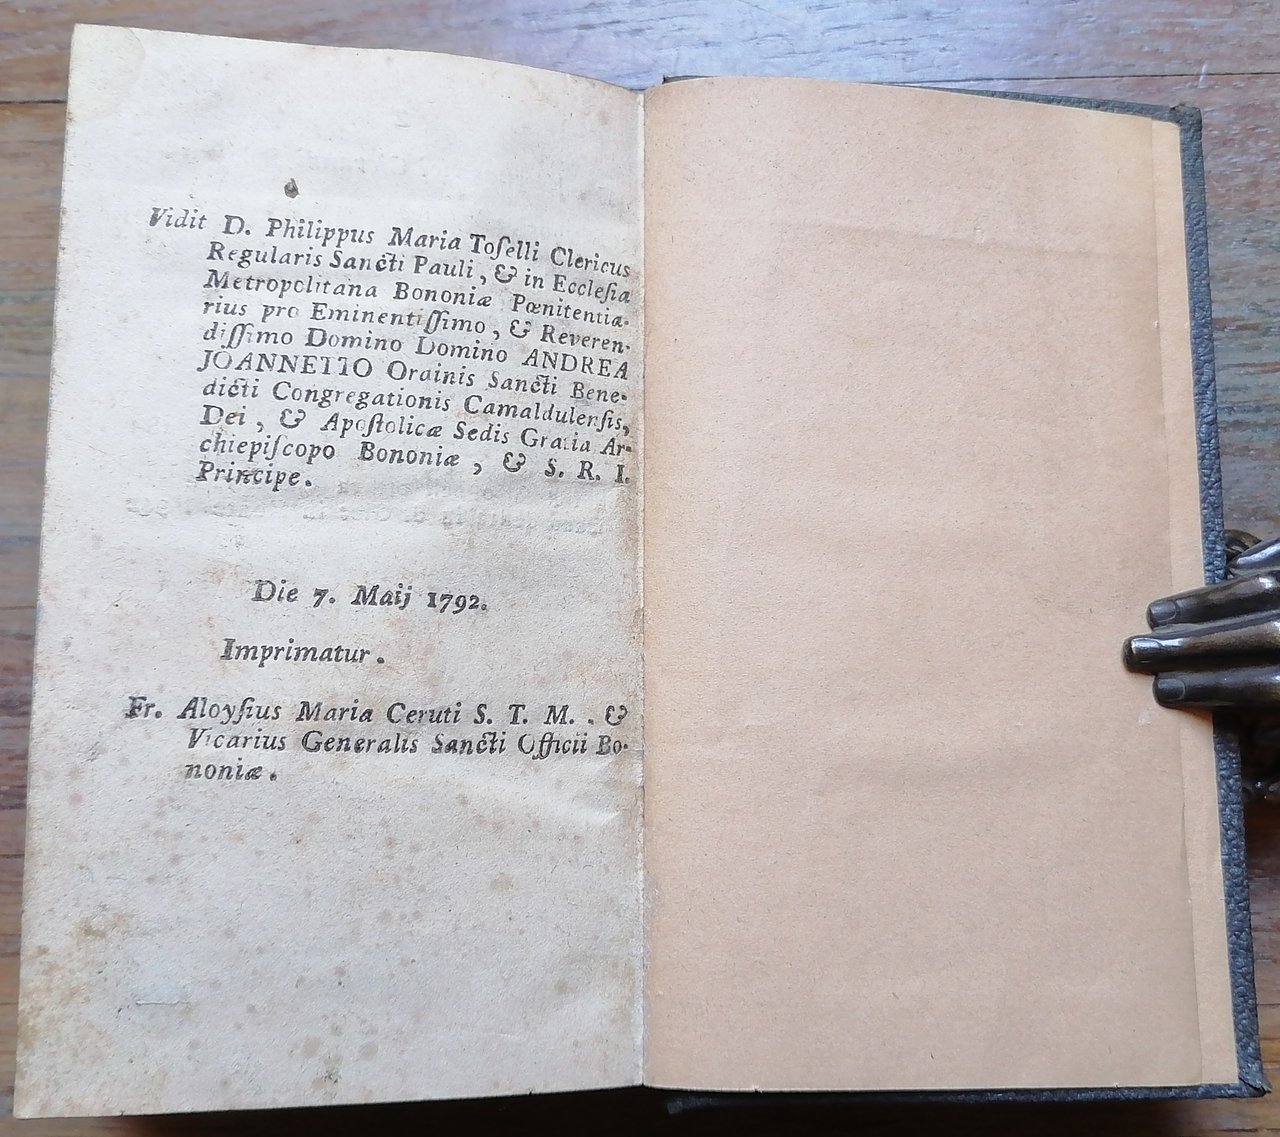 Vidit D. Philippus Maria Toſelli Clericus
Regularis Sancti Pauli, & in Eccleſia
Metropolitana Bononiæ Pœnitentia-
rius pro Eminentiſſimo, & Reveren-
diſſimo Domino Domino ANDREA
JOANNETTO Ordinis Sancti Bene-
dicti Congregationis Camaldulenſis,
Dei, & Apoſtolicæ Sedis Gratia Ar-
chiepiſcopo Bononiæ, & S. R. I.
Principe.
Die 7. Maij 1792.
Imprimatur.
Fr. Aloyſius Maria Ceruti S. T. M. . &
Vicarius Generalis Sancti Officii Bo-
noniæ.